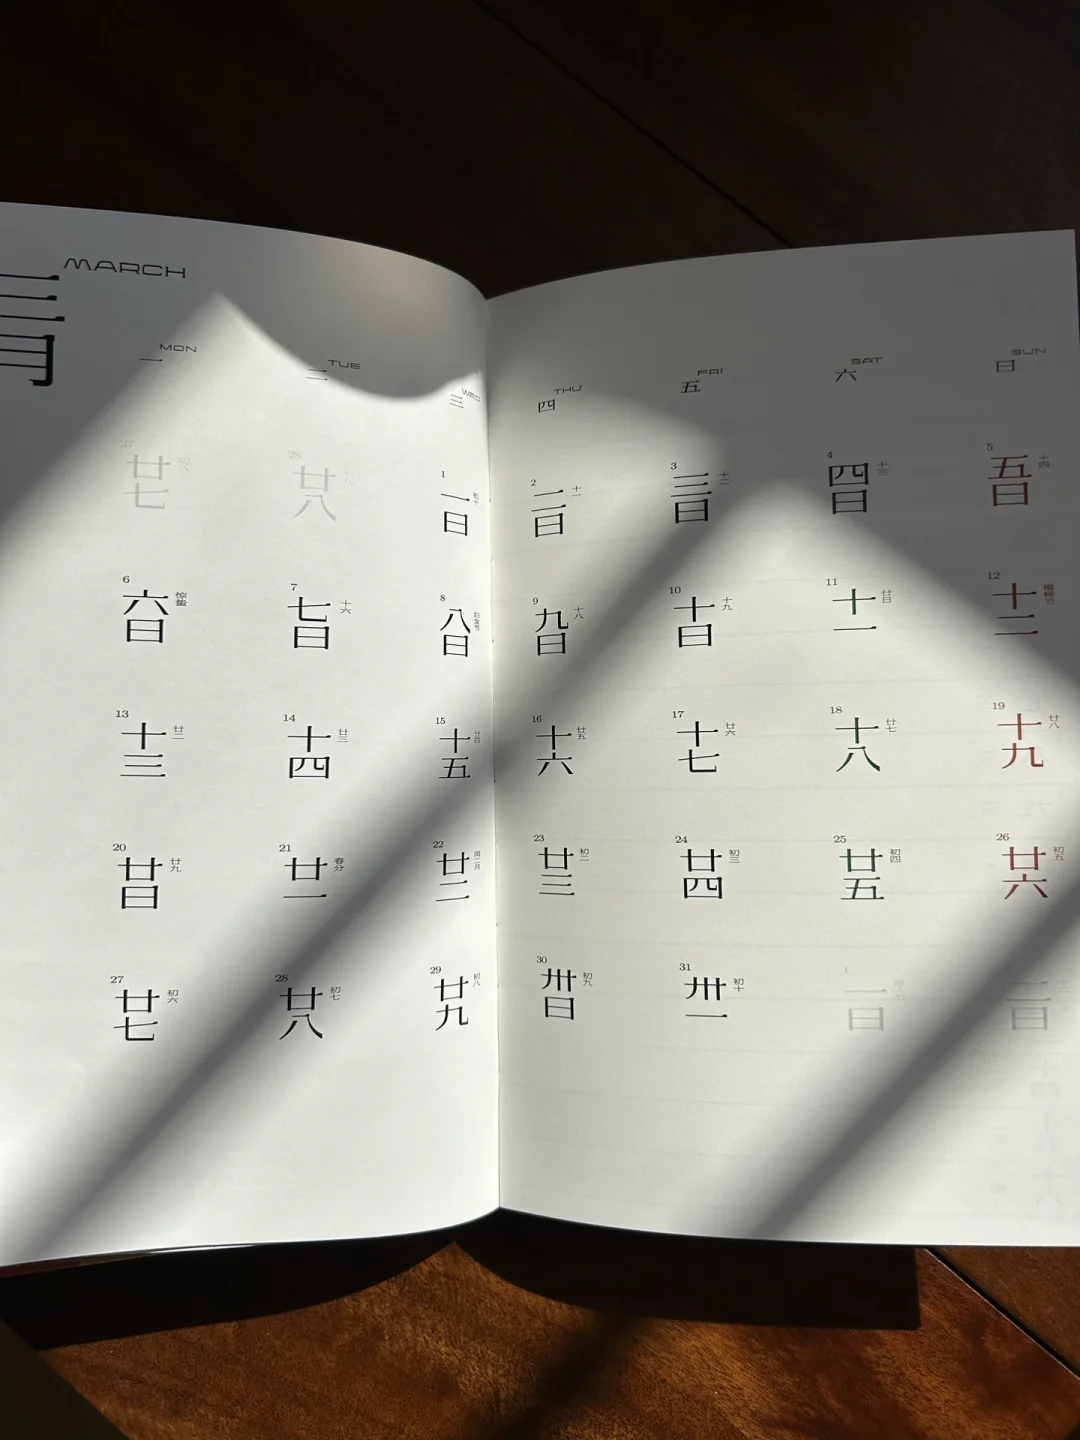 MARCH
三月
MON 一
TUE 二
WED 三
THU 四
FRI 五
SAT 六
SUN 日
27 廿七 初八
28 廿八 初九
1 一日 初十
2 二日 十一
3 三日 十二
4 四日 十三
5 五日 十四
6 六日 惊蛰
7 七日 十六
8 八日 妇女节
9 九日 十八
10 十日 十九
11 十一 廿日
12 十二 植树节
13 十三 廿二
14 十四 廿三
15 十五 廿四
16 十六 廿五
17 十七 廿六
18 十八 廿七
19 十九 廿八
20 廿日 廿九
21 廿一 春分
22 廿二 闰二月
23 廿三 初二
24 廿四 初三
25 廿五 初四
26 廿六 初五
27 廿七 初六
28 廿八 初七
29 廿九 初八
30 卅日 初九
31 卅一 初十
1 一日
二日